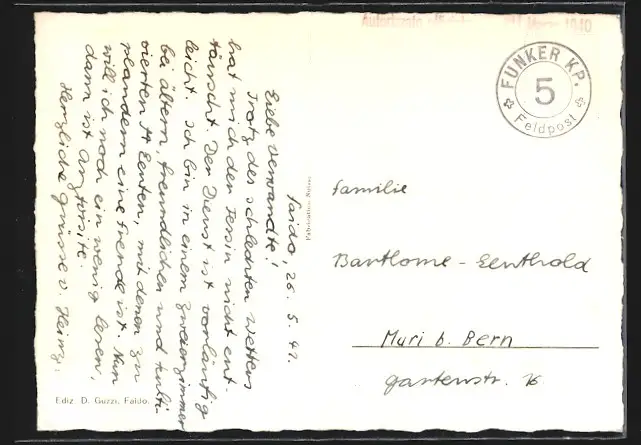 Faido, 26. 5. 41.
Liebe Verwandte!
Trotz des schlechten Wetters
hat mich der Tessin nicht ent-
täuscht. Der Dienst ist vorläufig
leicht. Ich bin in einem Zweierzimmer
bei ältern, freundlichen und kulti-
vierten Leuten, mit denen zu
plaudern eine Freude ist. Nun
will ich noch ein wenig lesen,
dann ist
Herzliche Grüsse v. Heinz.
Ediz. D. Guzzi, Faido.
FUNKER KP.
5
Feldpost
Familie
Muri b. Bern
Gartenstr. 16